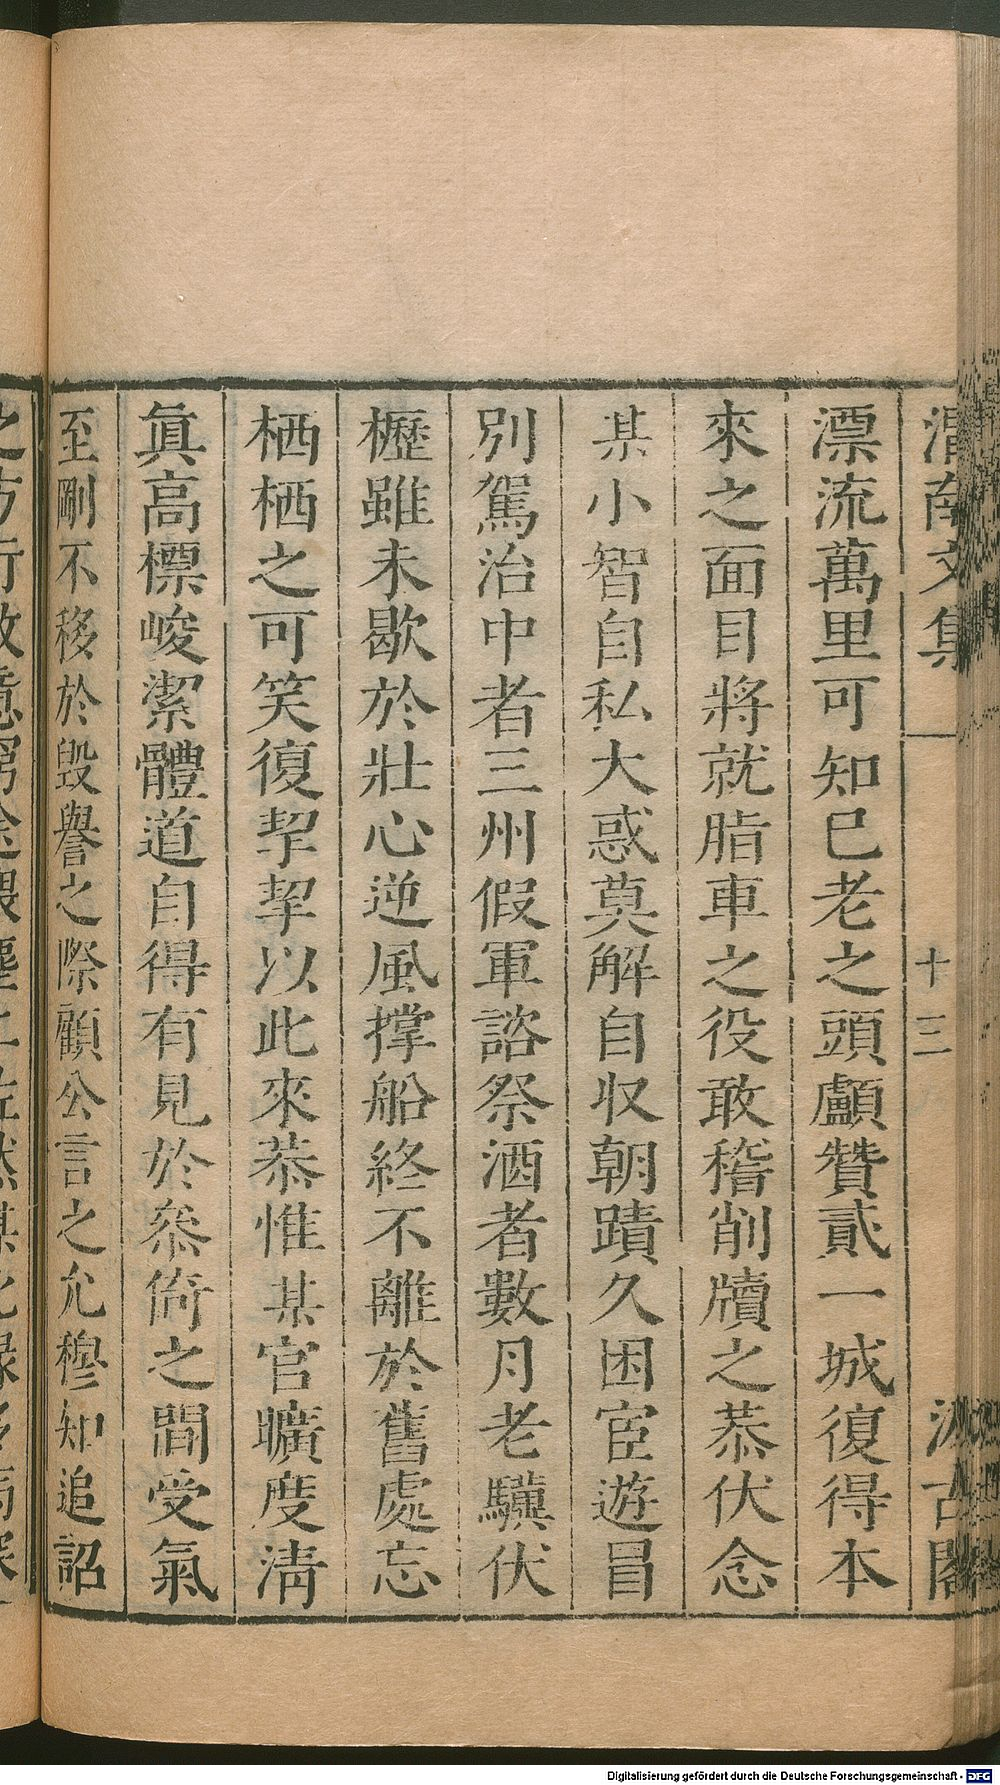 渭南文集 一 十三 汲古閣
漂流萬里可知已老之頭顱贊貳一城復得本
來之面目將就脂車之役敢稽削牘之恭伏念
某小智自私大惑莫解自収朝蹟久困宦遊冒
別駕治中者三州假軍諮祭酒者數月老驥伏
櫪雖未歇於壯心逆風撑船終不離於舊處忘
栖栖之可笑復挈挈以此來恭惟某官曠度淸
眞高標峻潔體道自得有見於叅倚之間受氣
至剛不移於毁譽之際顧公言之允穆知追詔
Digitalisierung gefördert durch die Deutsche Forschungsgemeinschaft - DFG